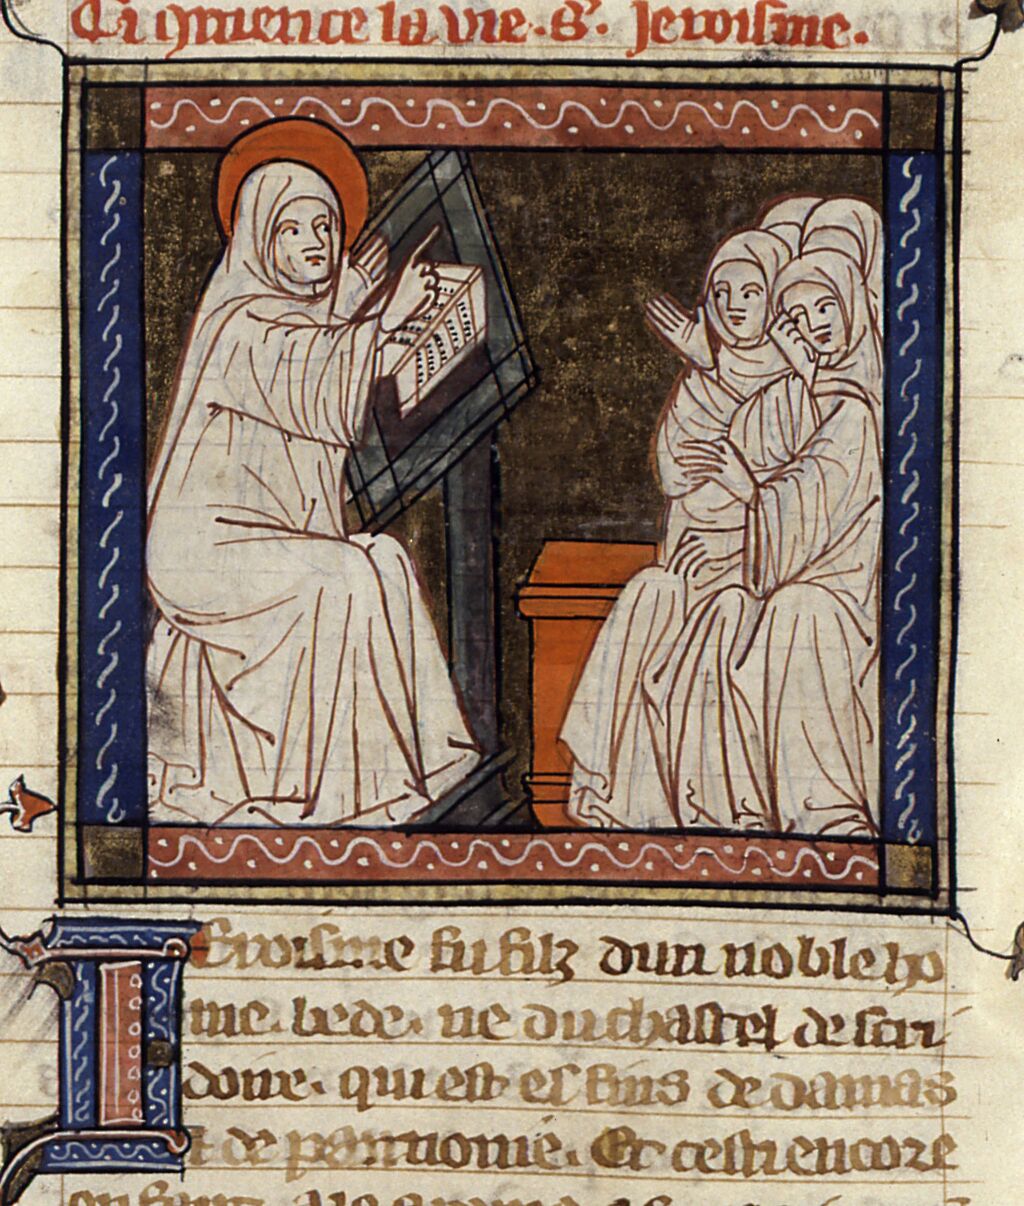 Ci qmence la vie. S'. Jeroisme.
Ieroisme fu filz dun noble ho
me. bede. ne du chastel de stri
done. qui est es fins de damas
et de pannonie. Et cestui encore